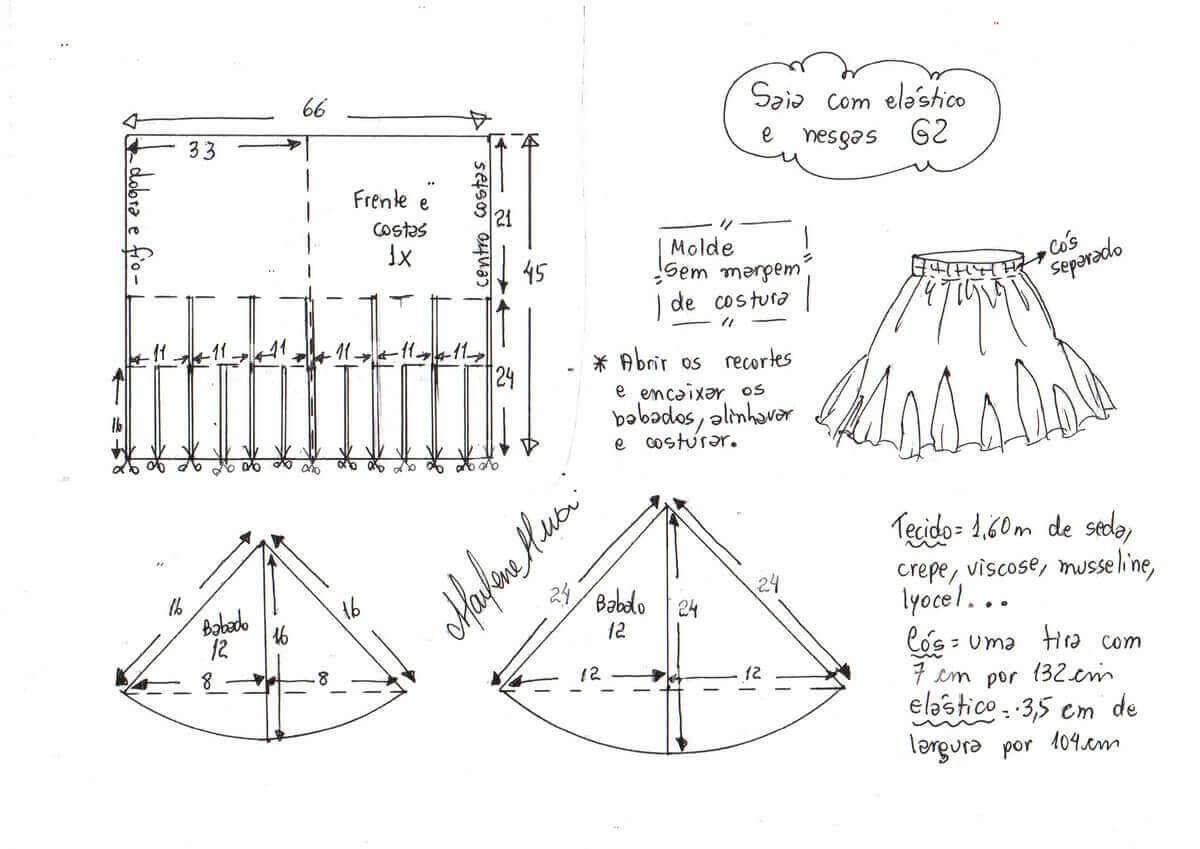 Saia com elástico
e nesgas G2
66
33
dobra e fio
Frente e
costas
1x
centro costas
21
45
11 11 11 11 11 11
24
16
Molde
Sem margem
de costura
cós
separado
* Abrir os recortes
e encaixar os
babados, alinhavar
e costurar.
16
Babado
12
16
16
8
8
Marlene Mukai
24
Babado
12
24
24
12
12
Tecido = 1,60m de seda,
crepe, viscose, musseline,
lyocel...
Cós = uma tira com
7 cm por 132 cm
elástico = 3,5 cm de
largura por 104 cm